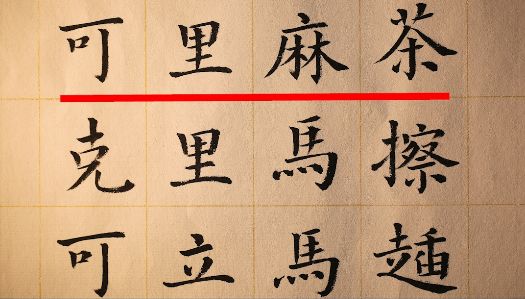 可里麻茶
克里馬擦
可立馬